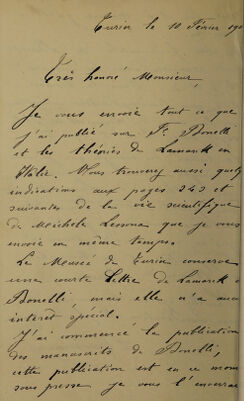 Turin le 10 Février 190
Très honoré Monsieur,
Je vous envoie tout ce que
j'ai publié sur F. Bonelli
et les théories de Lamarck en
Italie. Vous trouverez aussi quelq
indications aux pages 243 et
suivantes de la vie scientifique
de Michele Lessona que je vous
envoie en même temps.
Le Musée de Turin conserve
une courte lettre de Lamarck à
Bonelli, mais elle n'a aucu
interet spécial.
J'ai commencé la publication
des manuscrits de Bonelli,
cette publication est en ce mom
sous presse je vous l'enverrai